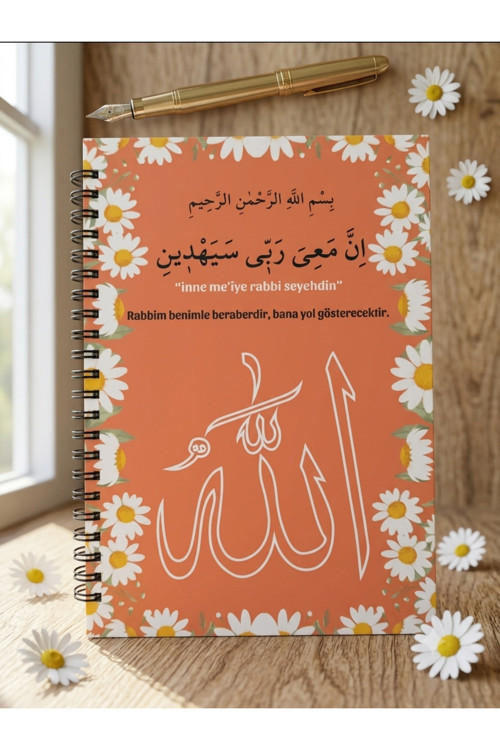 بِسْمِ اللَّهِ الرَّحْمٰنِ الرَّحِيمِ
اِنَّ مَعِيَ رَبّٖى سَيَهْدٖينِ
"inne me'iye rabbi seyehdin"
Rabbim benimle beraberdir, bana yol gösterecektir.
الله